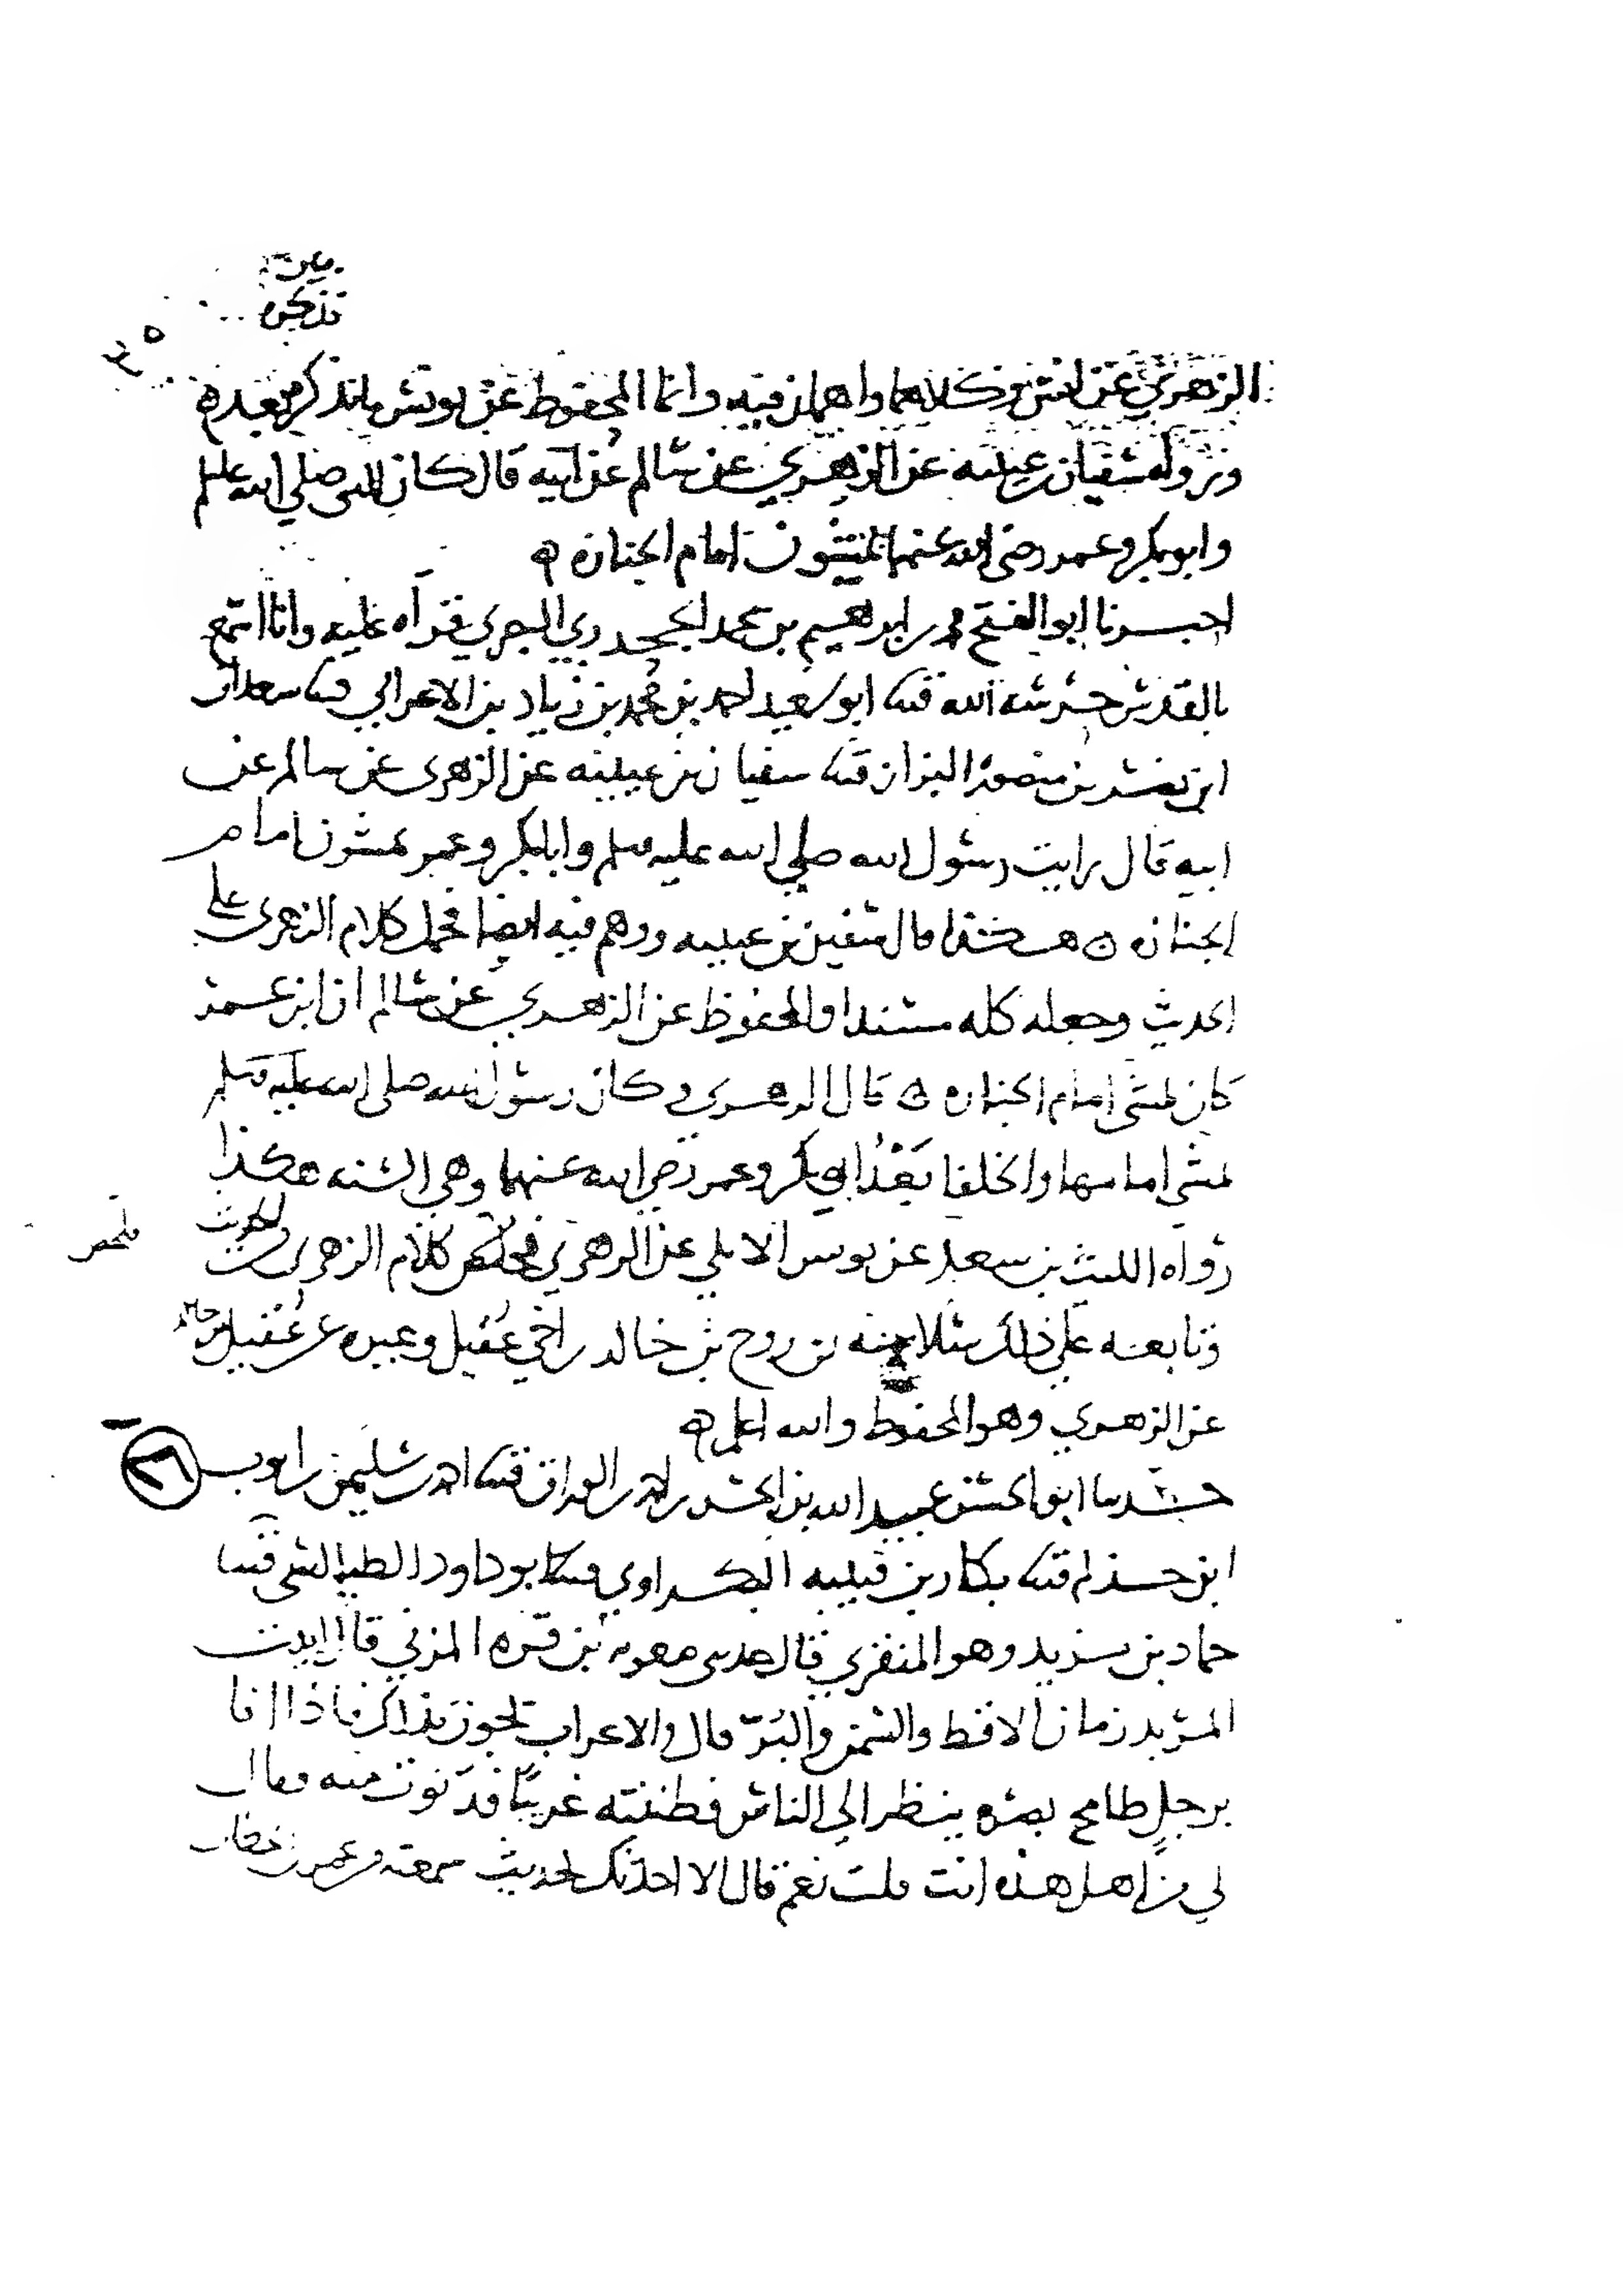 تذكره
الزهري عن انس وكلاهما واهمان فيه وانما المحفوظ عن يونس ما نذكره بعده
ورواه سفيان بن عيينه عن الزهري عن سالم عن ابيه قال كان النبي صلي الله عليه وسلم
وابو بكر وعمر رضي الله عنهما يمشون امام الجنازه ه
اخبرنا ابو الفتح محمد بن ابراهيم بن محمد الجحدري البصري قرآه عليه وانا اسمع
بالقدس حرسه الله قثنا ابو سعيد احمد بن محمد بن زياد بن الاعرابي قثنا سعدان
ابن نصر بن منصور البزاز قثنا سفيان بن عيينه عن الزهري عن سالم عن
ابيه قال رايت رسول الله صلي الله عليه وسلم وابا بكر وعمر يمشون امام
الجنازه ه هكذا قال سفين بن عيينه ووهم فيه ايضا فحمل كلام الزهري علي
الحديث وجعله كله مسندا والمحفوظ عن الزهري عن سالم ان ابن عمر
كان يمشي امام الجنازه ه قال الزهري وكان رسول الله صلي الله عليه وسلم
يمشي امامها والخلفا بعد ابي بكر وعمر رضي الله عنهما وهي السنه هكذا
رواه الليث بن سعد عن يونس الايلي عن الزهري فخلص كلام الزهري والحديث
وتابعه علي ذلك سلامه بن روح بن خالد بن اخي عقيل وغيره عن عقيل بن خالد
عن الزهري وهو المحفوظ والله اعلم ه
حدثنا ابو الحسن عبيد الله بن الحسن بن احمد الوراق قثنا احمد بن سليمن بن ايوب
٢٦
ابن حذلم قثنا بكار بن قتيبه البكراوي قثنا ابو داود الطيالسي قثنا
حماد بن يزيد وهو المنقري قال حدثني معويه بن قره المزني قال اتيت
المربد زمان الاقط والسمن والبر قال والاعراب تجوز فاذا انا
برجل طامح بصره ينظر الي الناس فظننته غريبا فدنوت منه فقال
لي من اهل هذه انت قلت نعم قال الا احدثك بحديث سمعته من عمر بن خطاب